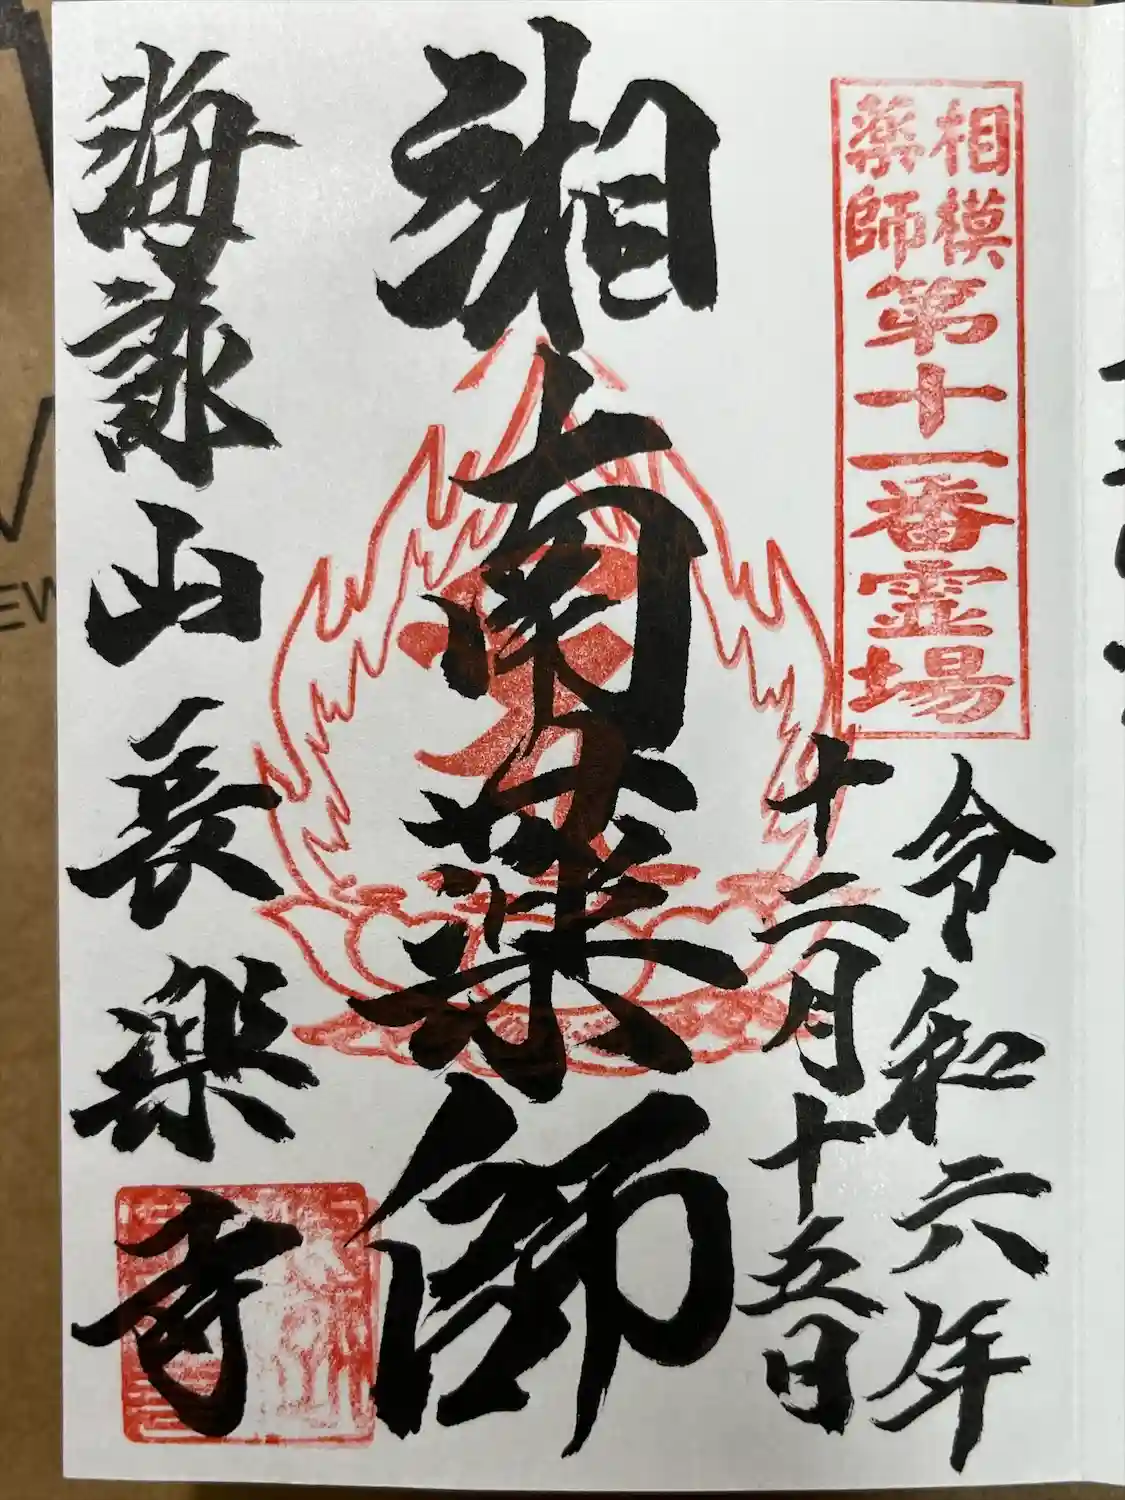 相模
薬師
第十一番霊場
令和六年
十二月十五日
湘南薬師
海詠山長楽寺
EW